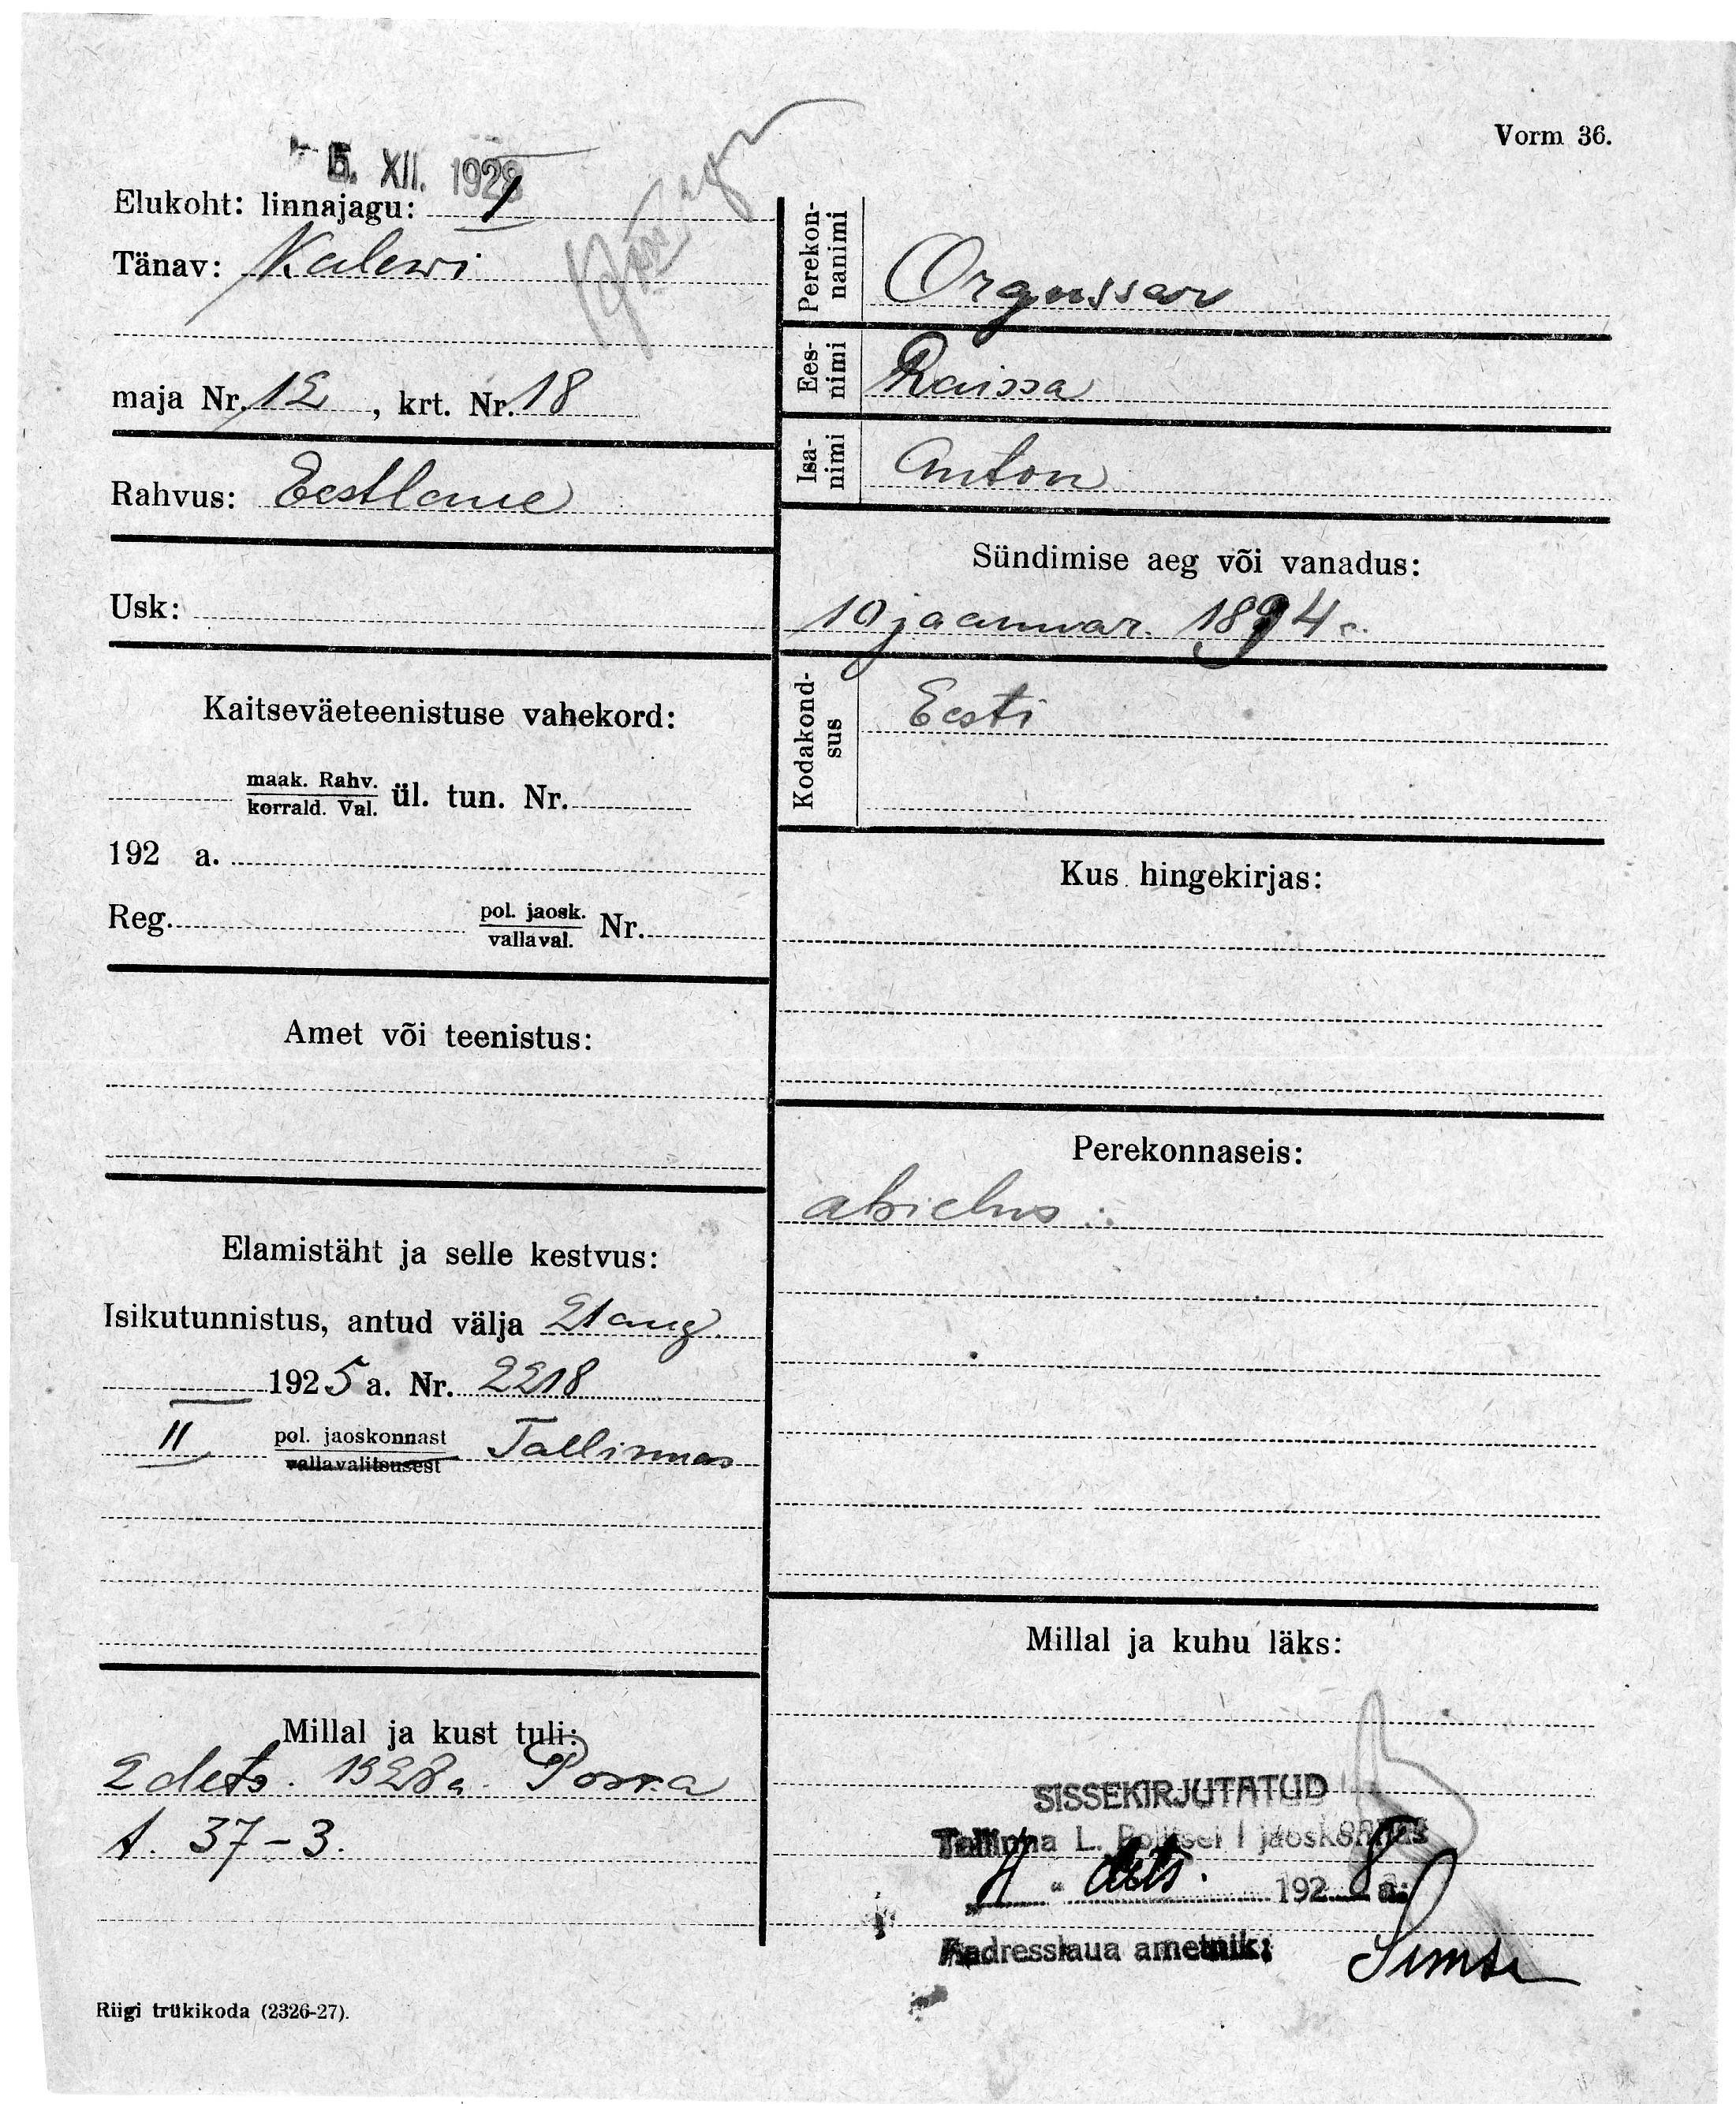 Vorm 36.
5. XII. 1928
Elukoht: linnajagu: I
Tänav: Kalewi
maja Nr. 12, krt. Nr. 18
Rahvus: Eestlane
Usk:
Kaitseväeteenistuse vahekord:
maak. Rahv.
korrald. Val. ül. tun. Nr.
192 a.
Reg. pol. jaosk.
vallaval. Nr.
Amet või teenistus:
Elamistäht ja selle kestvus:
Isikutunnistus, antud välja 21 aug
1925 a. Nr. 2218
II pol. jaoskonnast Tallinnas
vallavalitsusest
Millal ja kust tuli:
2 dets. 1928 a. Posra
t. 37-3.
Riigi trükikoda (2326-27).
Perekon-
nanimi Orgussar
Ees-
nimi Raissa
Isa-
nimi Anton
Sündimise aeg või vanadus:
10 jaanuar. 1894 a.
Kodakond-
sus Eesti
Kus hingekirjas:
Perekonnaseis:
abielus
Millal ja kuhu läks:
SISSEKIRJUTATUD
Tallinna L. Politsei I jaoskonnas
4 " dets. 1928 a.
Aadresslaua ametnik: